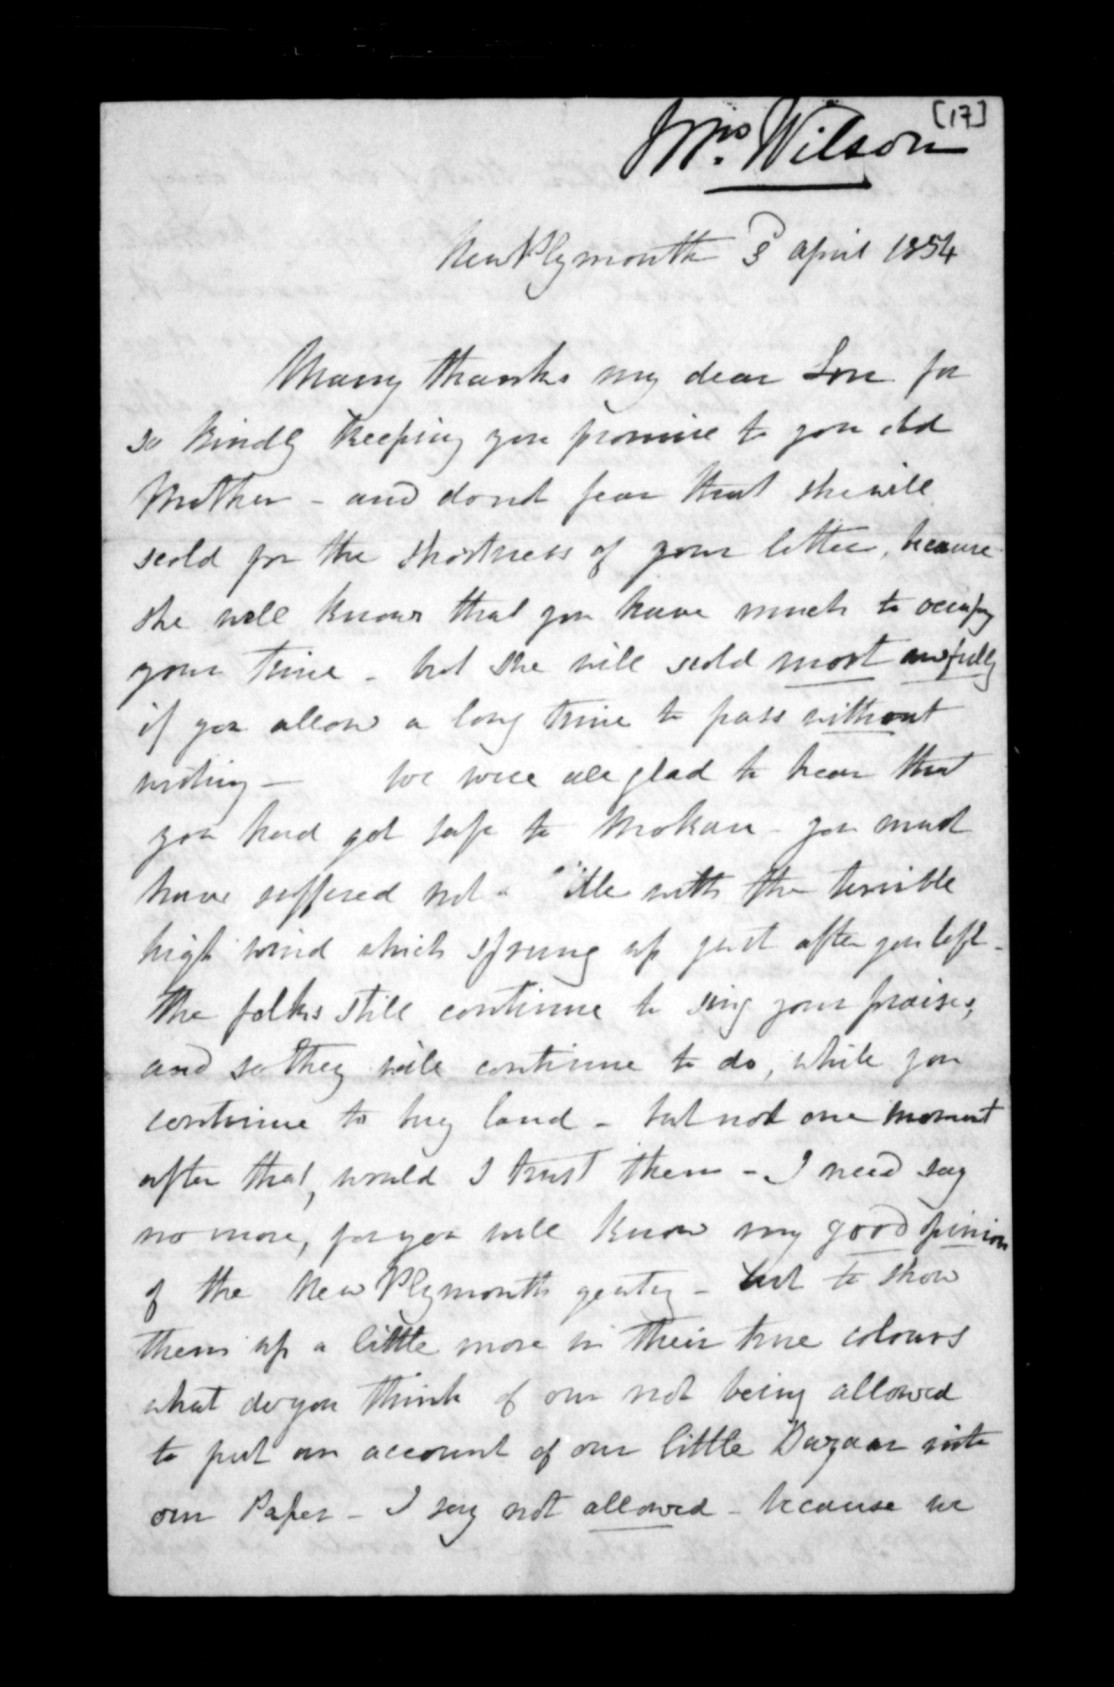 [17]
Mrs. Wilson
New Plymouth 3 April 1854
Many thanks my dear Son for
so kindly keeping your promise to your old
Mother - and do not fear that she will
scold for the shortness of your letter, because
she well knows that you have much to occupy
your time - but she will scold most awfully
if you allow a long time to pass without
writing - We were all glad to hear that
you had got safe to Mokau - you must
have suffered not a little with the terrible
high wind which sprung up just after you left -
the folks still continue to sing your praises,
and so they will continue to do, while you
continue to buy land - but not one moment
after that, would I trust them - I need say
no more, for you well know my good opinion
of the New Plymouth gentry - but to show
them up a little more in their true colours
what do you think of our not being allowed
to put an account of our little Bazaar into
our Paper - I say not allowed - because we